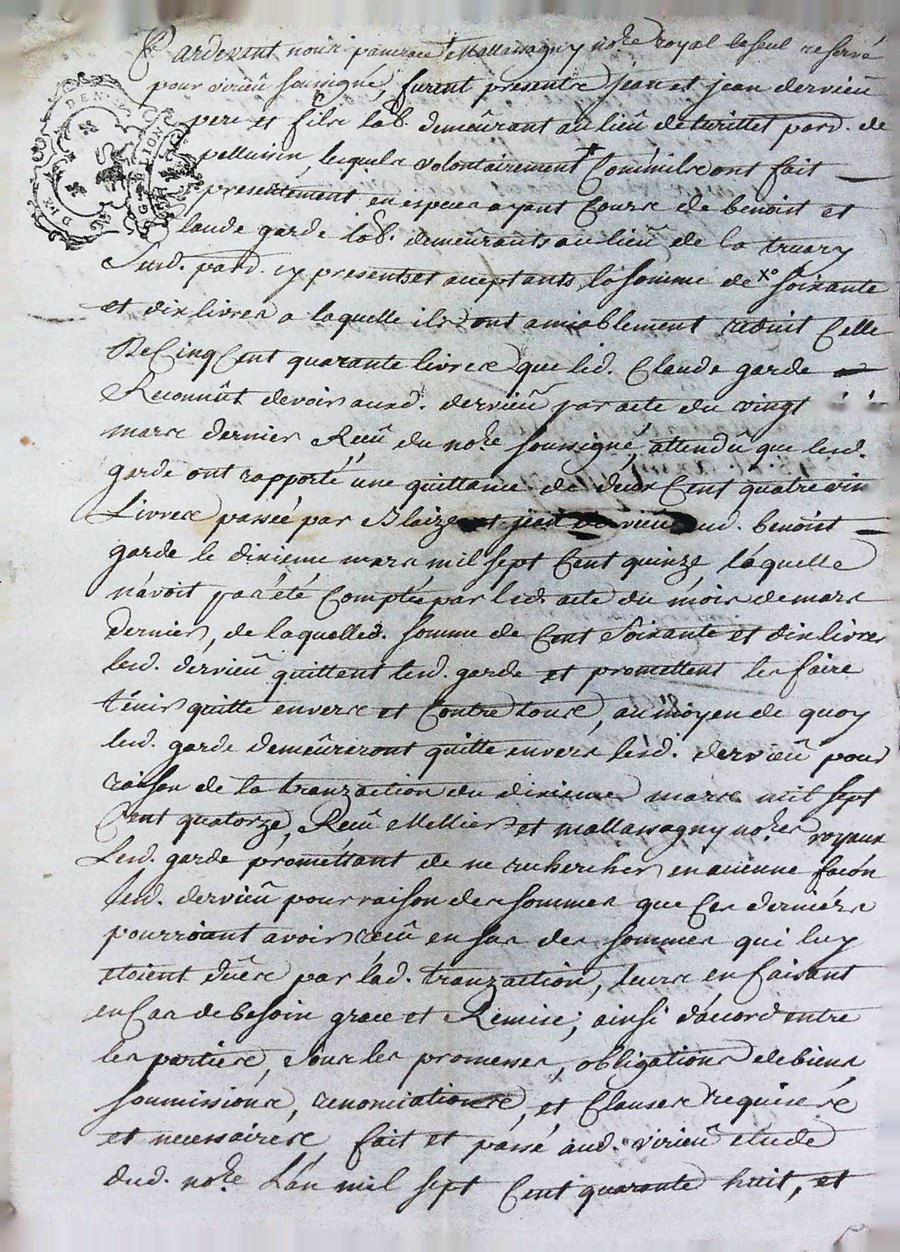 Pardevant nous pancrace Mallassagny no.re royal le seul reservé
pour virieû soussigné, furent presents jean et jean dervieû
pere et fils lab. demeûrant au lieû de turillet par.d. de
pelussin lequels volontairement + ont fait
presentement en especes ayant Cours de benoist et
laude garde lab. demeûrants au lieû de la
Sud. par.d. icy presents et aceptants la somme de X° soixante
et dix livres a laquelle ils ont amiablement reduit Celle
De Cinq Cent quarante livres que led. Claude garde
Reconnût devoir aux d. dervieû par acte du vingt
mars dernier Receû du no.re soussigné, attendu que lesd.
garde ont rapporté une quittance de deux Cent quatre vin
Livres passée par Blaize et jean dervieû aud. benoist
garde le dixieme mars mil sept Cent quinze, laquelle
n'avoit pas été Comptée par led. acte du mois de mars
dernier, de laquelle d. somme de Cent Soixante et dix livres
lesd. dervieû quittent lesd. garde et promettent les faire
tenir quitte envers et Contre tous, au moyen de quoy
lesd. garde demeûreront quitte envers lesd. dervieû pour
raison de la tranzaction du dixieme mars mil sept
Cent quatorze, Receû Mellier et mallassagny no.res royaux
Lesd. garde promettant de ne rechercher en aucune facon
lesd. dervieû pour raison des sommes que Ces derniers
pourroient avoir receû en sus des sommes qui luy
etoient dûes par lad. tranzaction, leurs en faisant
en Cas de besoin grace et Remise; ainsi d'accord entre
les parties, sous les promesses, obligations de biens
soumissions, renonciations, et Clauses requises
et necessaires fait et passé aud. virieû etude
dud. no.re L'an mil sept Cent quarante huit, et
DEN.
G. LION